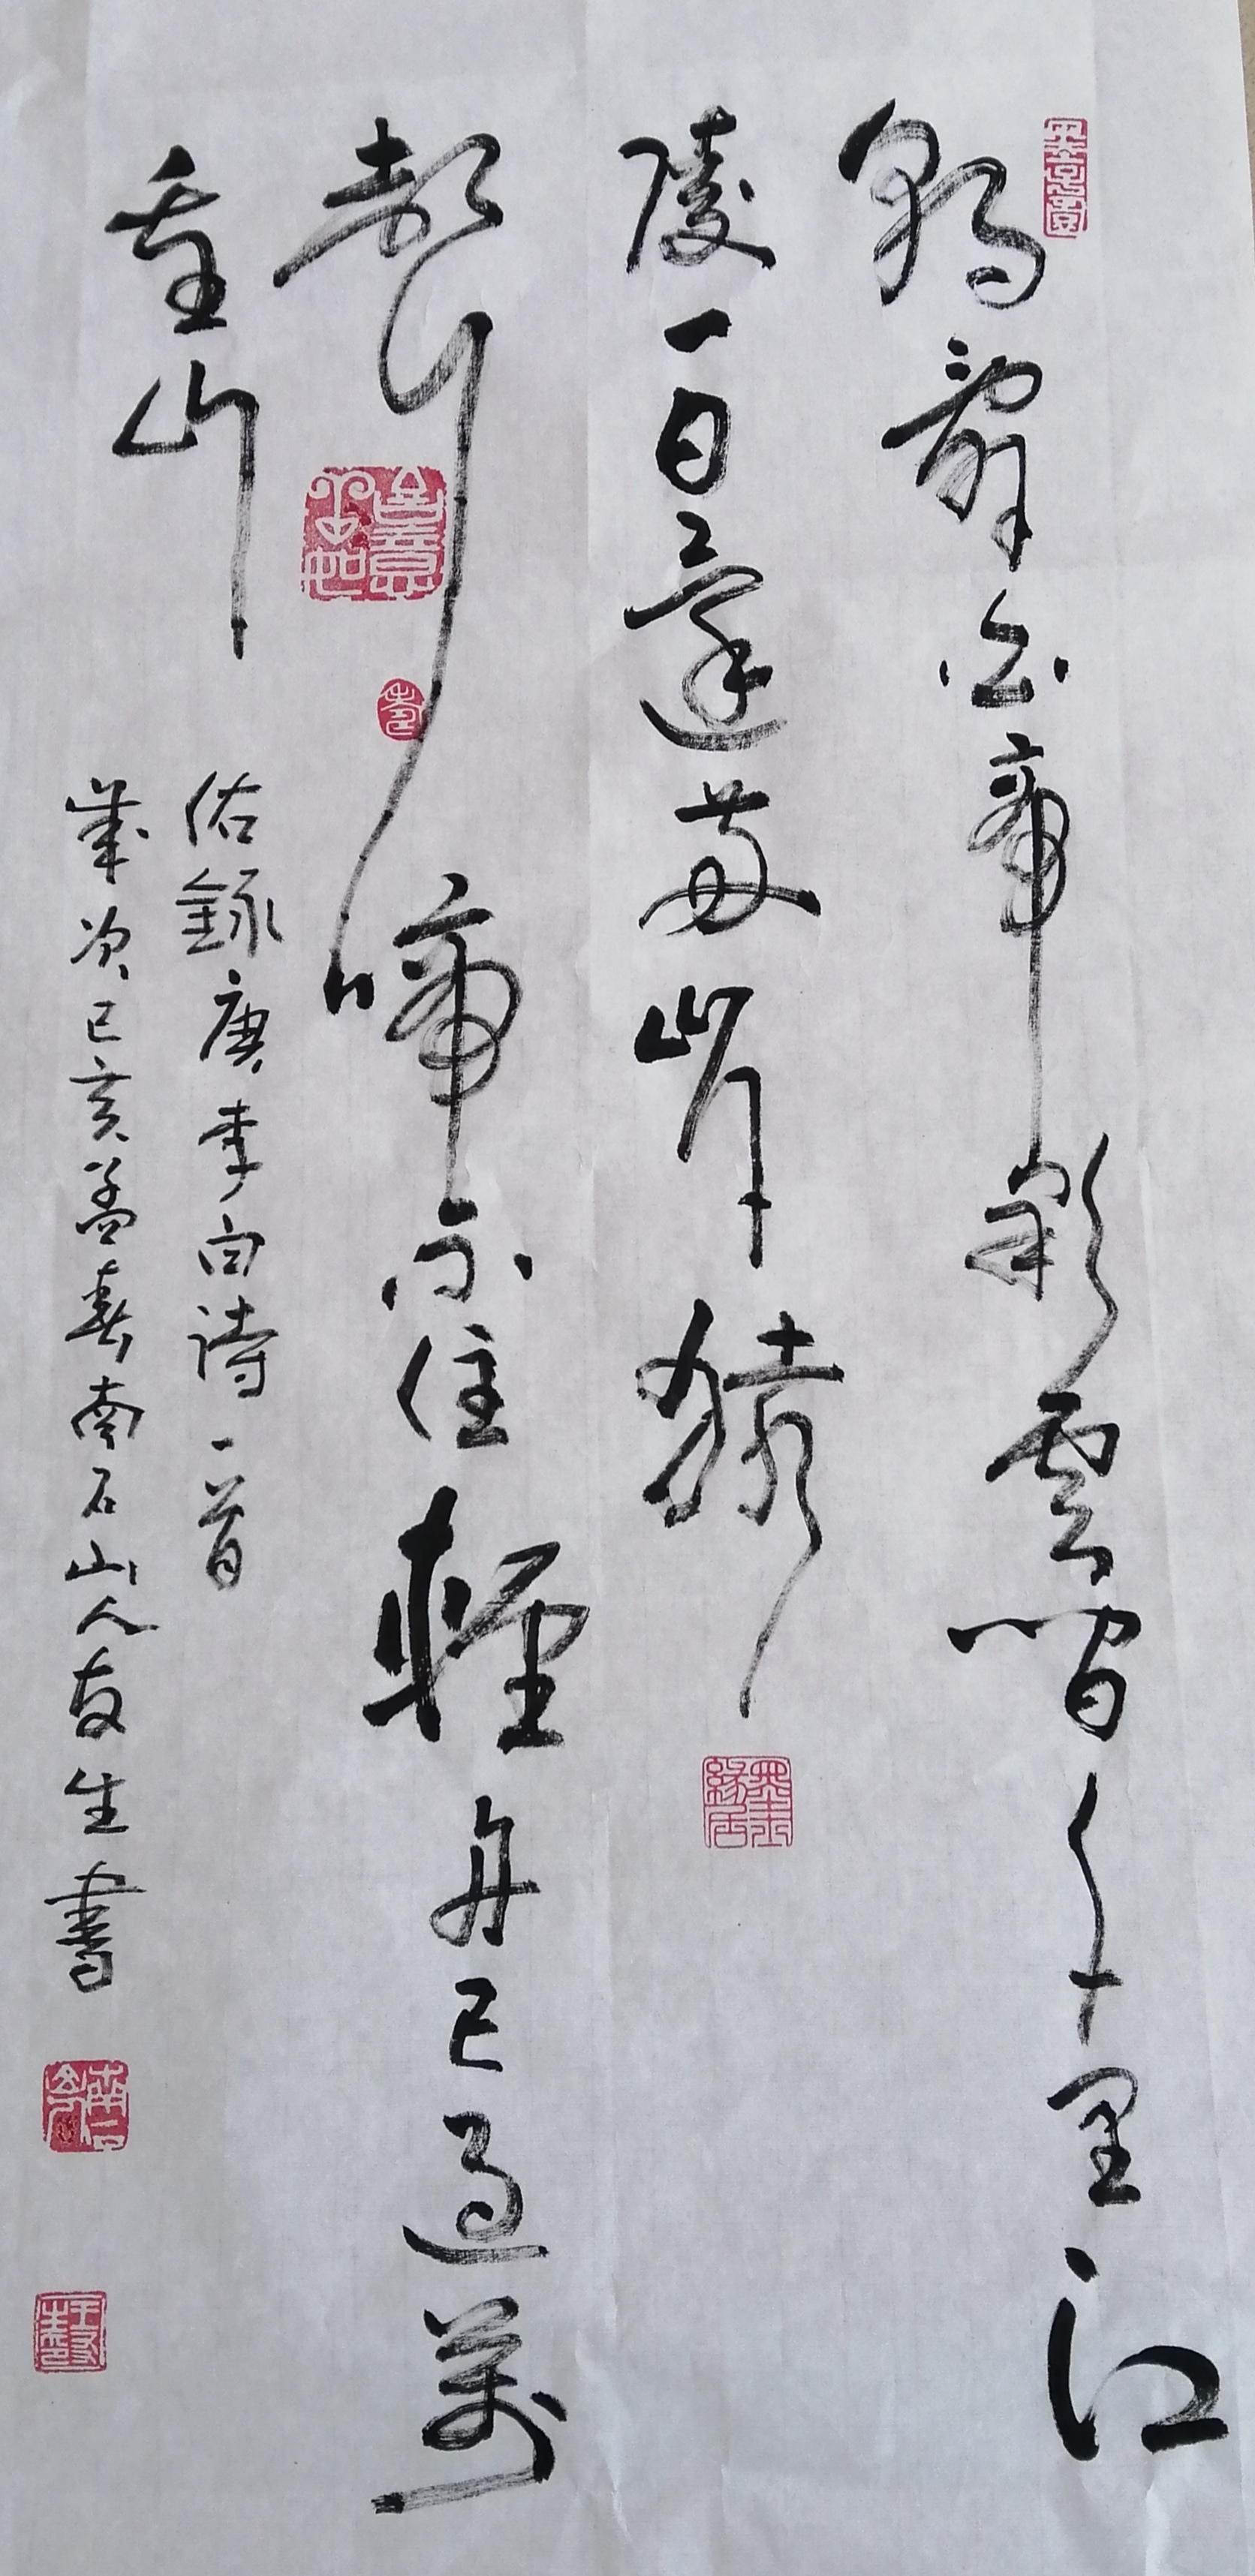 朝辭白帝彩雲間千里江
陵一日還兩岸猿
聲啼不住輕舟已過萬
重山
佑録唐李白詩一首
歲次己亥孟春南石山人友生書
墨緣居